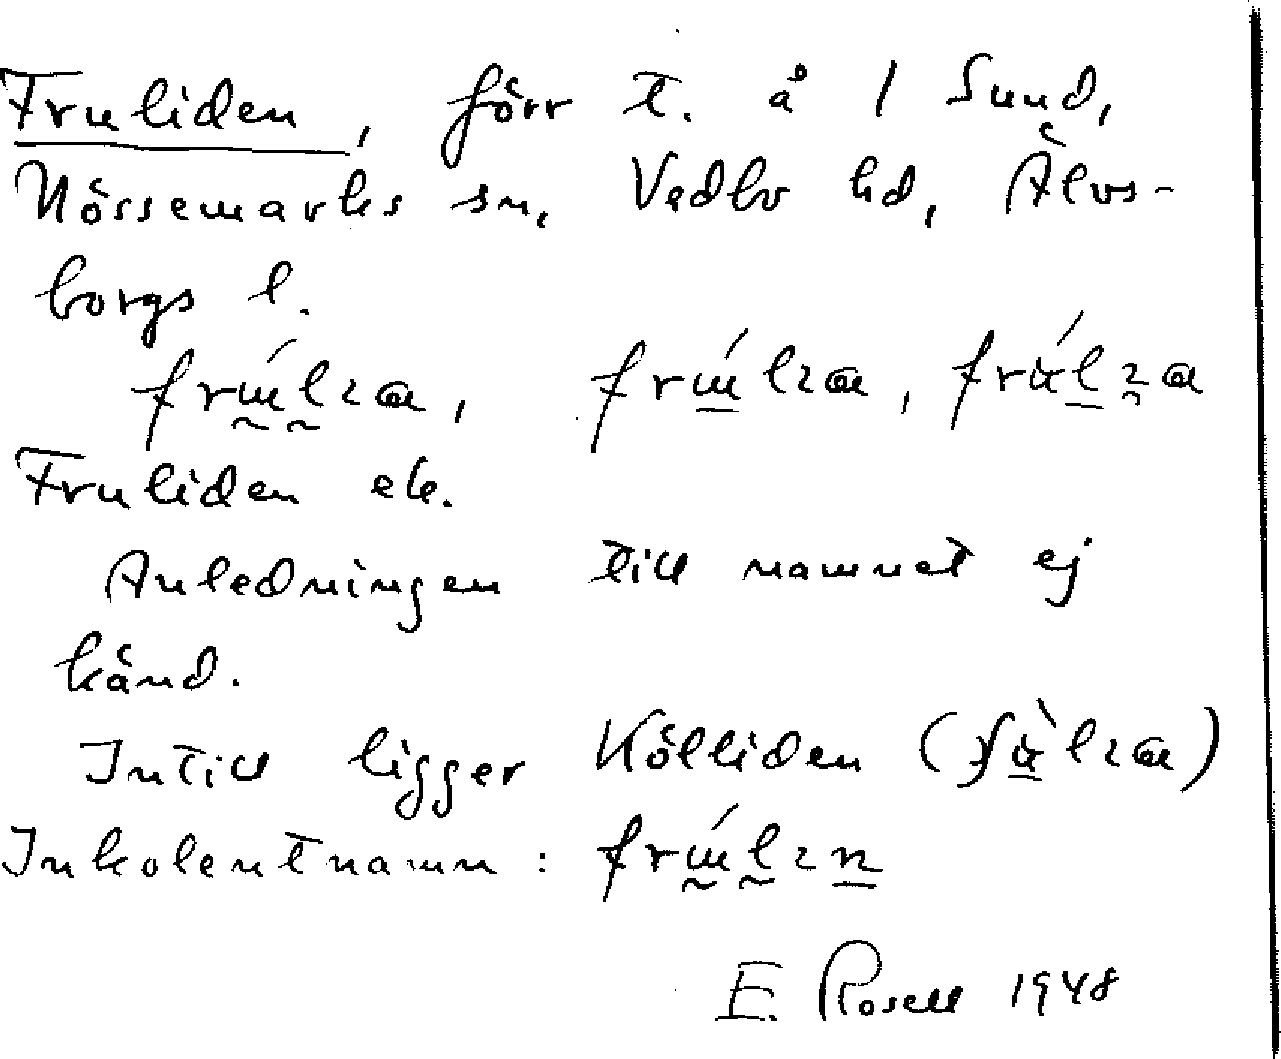 Fruliden, förr t. å 1 Sund,
Nössemarks sn, Vedbo hd, Älvs-
borgs l.
Fruliden ek.
Anledningen till namnet ej
känd.
Intill ligger Kölliden
Inkolentnamn:
E. Rosell 1948